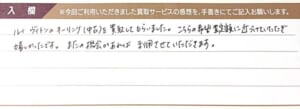 入 欄 ※今回ご利用いただきました買取サービスの感想を、手書きにてご記入お願いします。
ルイヴィトンのキーリング(中古)を買取してもらいました。こちらの希望金額に近くしていただき
嬉しかったです。またの機会があれば利用させていただきます。